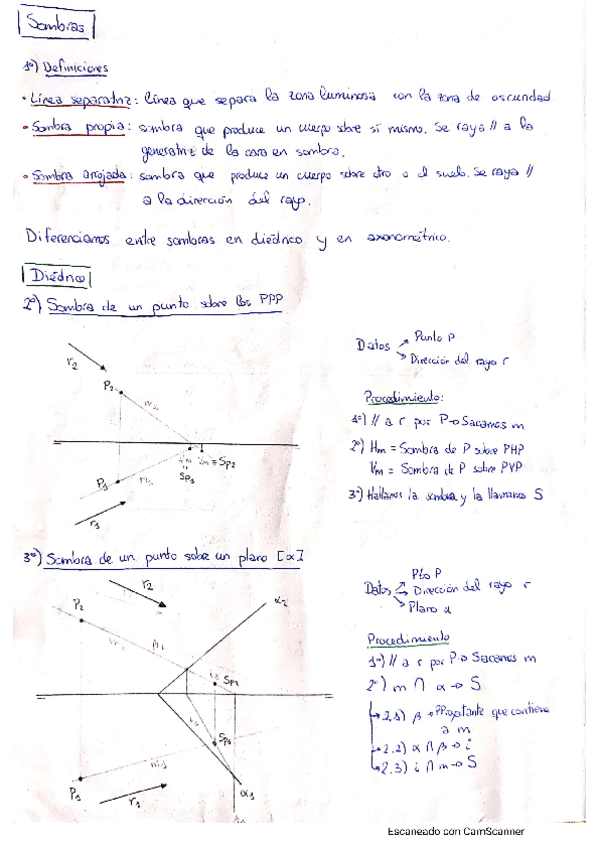 Sombras
1º) Definiciones
• Línea separatriz: línea que separa la zona luminosa con la zona de oscuridad.
• Sombra propia: sombra que produce un cuerpo sobre sí mismo. Se raya // a la
generatriz de la cara en sombra.
• Sombra arrojada: sombra que produce un cuerpo sobre otro o el suelo. Se raya //
a la dirección del rayo.
Diferenciamos entre sombras en diédrico y en axonométrico.
Diédrico
2º) Sombra de un punto sobre los PPP
r2
P2
m2
P1
m1
r1
Sp1
≡ Sp2
Datos
Punto P
Dirección del rayo r
Procedimiento:
1º) // a r por P → Sacamos m
2º) Hm = Sombra de P sobre PHP
Vm = Sombra de P sobre PVP
3º) Hallamos la sombra y la llamamos S
3º) Sombra de un punto sobre un plano [α]
r2
P2
α2
Sp2
Sp1
m1
P1
r1
α1
Datos
Pto P
Dirección del rayo r
Plano α
Procedimiento
1º) // a r por P → Sacamos m
2º) m ∩ α → S
2.1) β → que contiene
a m
2.2) α ∩ β → i
2.3) i ∩ m → S
Escaneado con CamScanner